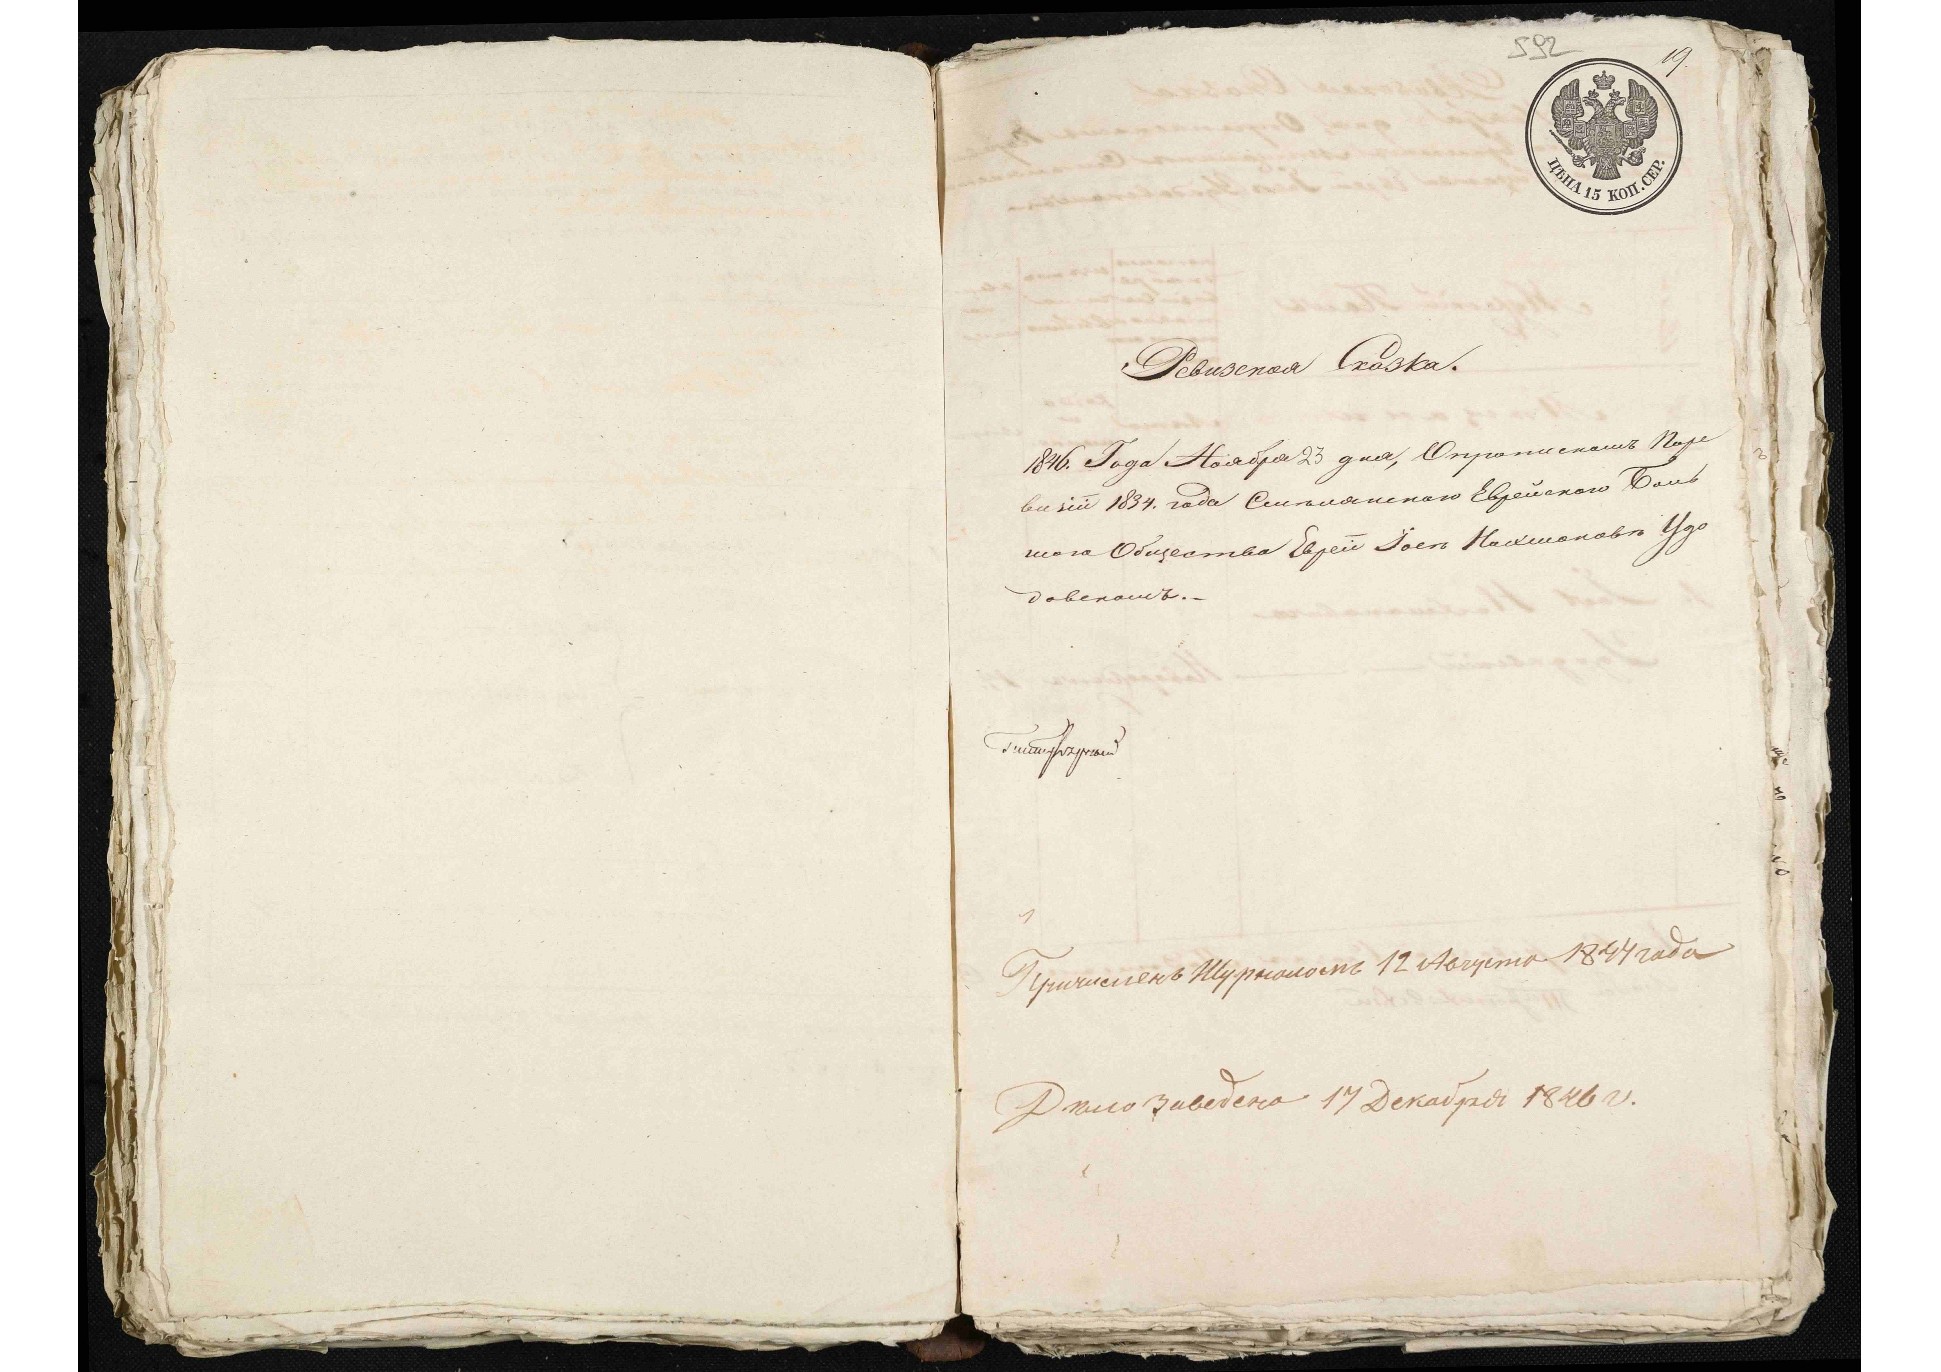 592
19.
ЦѢНА 15 КОП. СЕР.
Ревизская Сказка.
1846. Года Ноября 23 дня, О прописномъ По ре
визіи 1834. года Смѣлянского Еврейского
Общества Еврей Іосѣ Нахмановѣ Удо
довскомъ.–
Причисленъ Журналомъ 12 Августа 1844 года
Дѣло заведено 17 Декабря 1846 г.